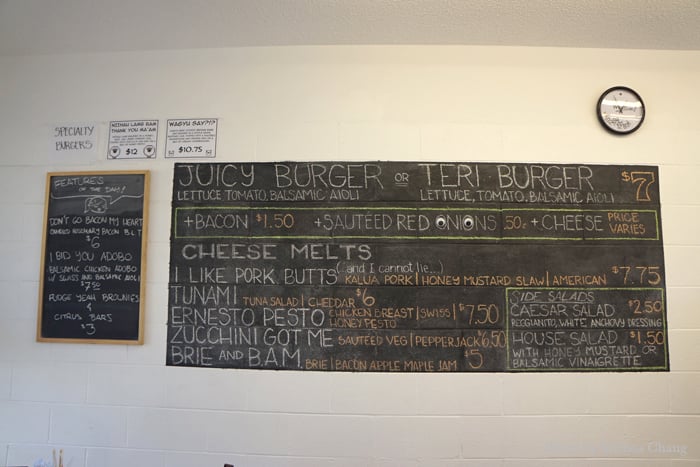 SPECIALTY
BURGERS
NIIHAU LAMB RAM
THANK YOU MA'AM
$12
WAGYU SAY?!?
$10.75
FEATURES
OF THE DAY!
DON'T GO BACON MY HEART
ROSEMARY BACON B.L.T
$6
I BID YOU ADOBO
BALSAMIC CHICKEN ADOBO
W/ SWISS AND BALSAMIC AIOLI
$7.50
FUDGE YEAH BROWNIES
&
CITRUS BARS
$3
JUICY BURGER OR TERI BURGER $7
LETTUCE TOMATO, BALSAMIC AIOLI LETTUCE, TOMATO, BALSAMIC AIOLI
+BACON $1.50 +SAUTÉED RED ONIONS .50¢ +CHEESE PRICE VARIES
CHEESE MELTS
I LIKE PORK BUTTS (...and I cannot lie...) KALUA PORK | HONEY MUSTARD SLAW | AMERICAN $7.75
TUNAMI TUNA SALAD | CHEDDAR $6
ERNESTO PESTO CHICKEN BREAST | SWISS | HONEY PESTO $7.50
ZUCCHINI GOT ME SAUTÉED VEG | PEPPERJACK 6.50
BRIE AND B.A.M. BRIE | BACON APPLE MAPLE JAM $5
SIDE SALADS
CAESAR SALAD $2.50
REGGIANITO, WHITE ANCHOVY DRESSING
HOUSE SALAD $1.50
WITH HONEY MUSTARD OR
BALSAMIC VINAIGRETTE
Chang